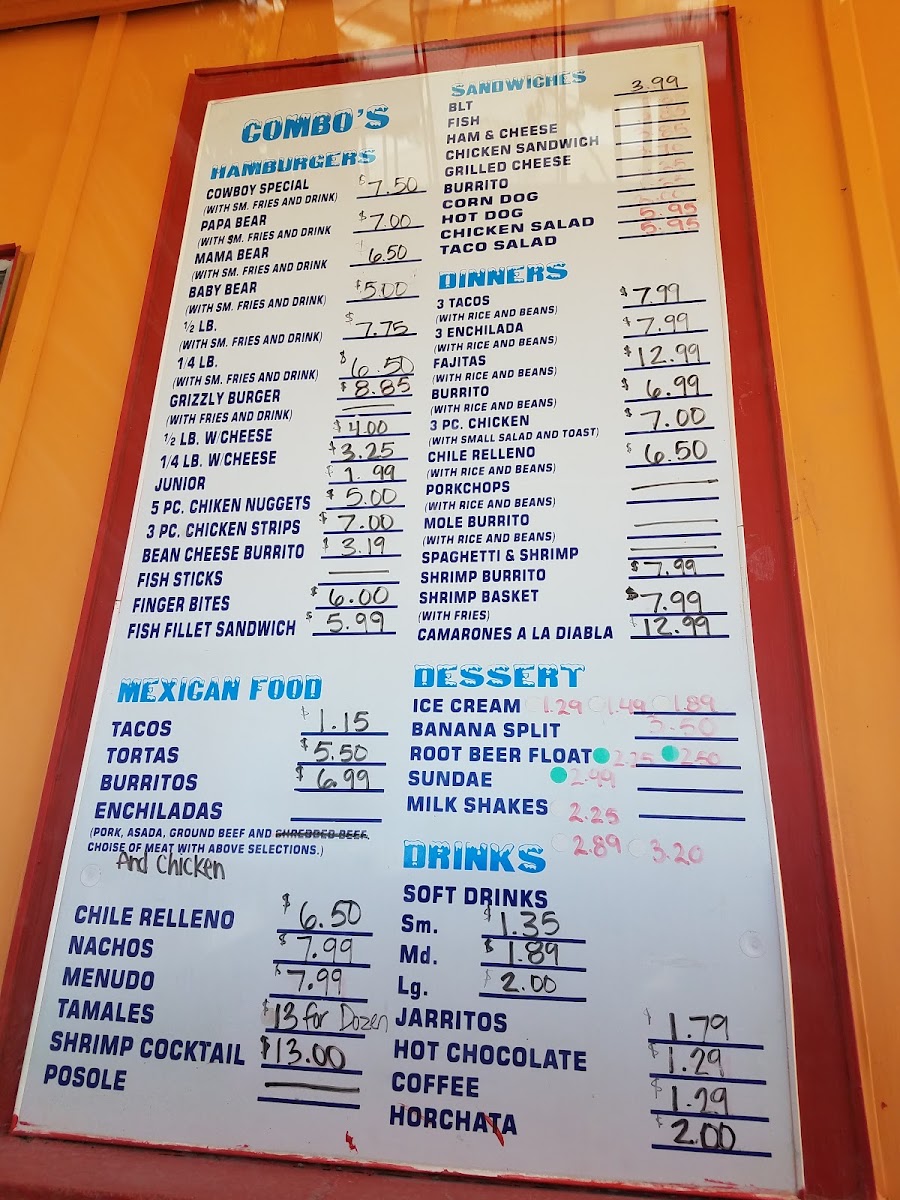 COMBO'S
HAMBURGERS
COWBOY SPECIAL $7.50
(WITH SM. FRIES AND DRINK)
PAPA BEAR $7.00
(WITH SM. FRIES AND DRINK
MAMA BEAR 6.50
(WITH SM. FRIES AND DRINK
BABY BEAR $5.00
(WITH SM. FRIES AND DRINK)
½ LB. $7.75
(WITH SM. FRIES AND DRINK)
1/4 LB. $6.50
(WITH SM. FRIES AND DRINK)
GRIZZLY BURGER $8.85
(WITH FRIES AND DRINK)
½ LB. W/CHEESE $4.00
1/4 LB. W/CHEESE $3.25
JUNIOR $1.99
5 PC. CHIKEN NUGGETS $5.00
3 PC. CHICKEN STRIPS $7.00
BEAN CHEESE BURRITO $3.19
FISH STICKS
FINGER BITES $6.00
FISH FILLET SANDWICH $5.99
MEXICAN FOOD
TACOS $1.15
TORTAS $5.50
BURRITOS $6.99
ENCHILADAS
(PORK, ASADA, GROUND BEEF AND SHREDDED BEEF.
CHOISE OF MEAT WITH ABOVE SELECTIONS.)
And Chicken
CHILE RELLENO $6.50
NACHOS $7.99
MENUDO $7.99
TAMALES $13 for Dozen
SHRIMP COCKTAIL $13.00
POSOLE
SANDWICHES
BLT 3.99
FISH
HAM & CHEESE
CHICKEN SANDWICH
GRILLED CHEESE
BURRITO
CORN DOG
HOT DOG
CHICKEN SALAD 5.95
TACO SALAD 5.95
DINNERS
3 TACOS $7.99
(WITH RICE AND BEANS)
3 ENCHILADA $7.99
(WITH RICE AND BEANS)
FAJITAS $12.99
(WITH RICE AND BEANS)
BURRITO $6.99
(WITH RICE AND BEANS)
3 PC. CHICKEN $7.00
(WITH SMALL SALAD AND TOAST)
CHILE RELLENO $6.50
(WITH RICE AND BEANS)
PORKCHOPS
(WITH RICE AND BEANS)
MOLE BURRITO
(WITH RICE AND BEANS)
SPAGHETTI & SHRIMP
SHRIMP BURRITO $7.99
SHRIMP BASKET $7.99
(WITH FRIES)
CAMARONES A LA DIABLA $12.99
DESSERT
ICE CREAM 1.29 1.49 1.89
BANANA SPLIT 3.50
ROOT BEER FLOAT 2.25 2.50
SUNDAE 2.99
MILK SHAKES 2.25
2.89 3.20
DRINKS
SOFT DRINKS
Sm. $1.35
Md. $1.89
Lg. $2.00
JARRITOS $1.79
HOT CHOCOLATE $1.29
COFFEE $1.29
HORCHATA $2.00